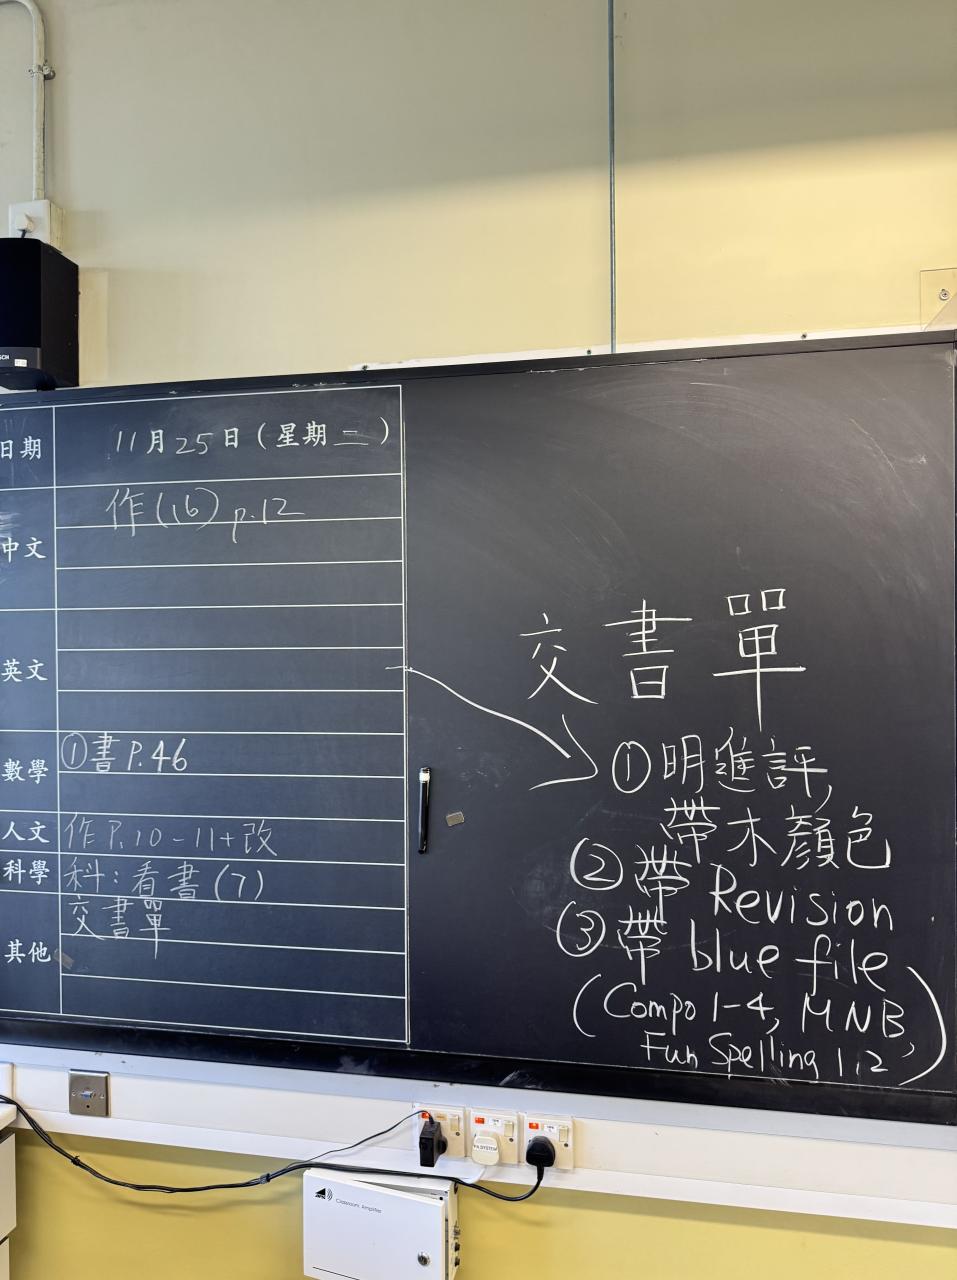 日期 11月25日(星期二)
中文 作(16) p.12
英文
數學 ①書P.46
人文 作P.10-11+改
科學 科:看書(7)
其他 交書單
交書單
①明進評,
帶木顏色
②帶 Revision
③帶 blue file
(Compo 1-4, MNB,
Fun Spelling 1,2)
PA SYSTEM
Classroom Amplifier